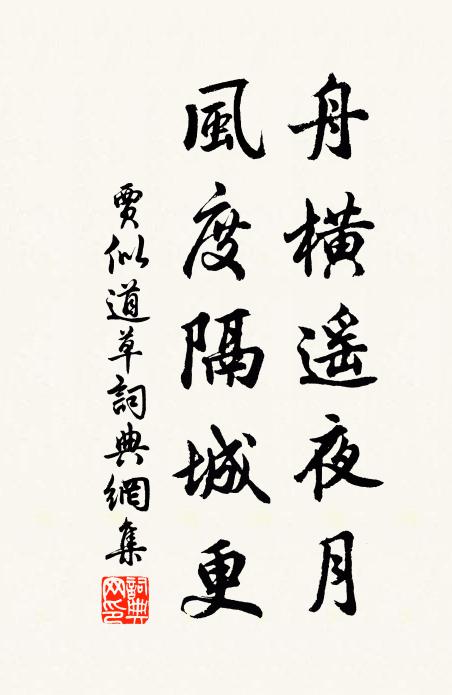 舟橫遥夜月
風度隔城更
賈似道草詞典網集
詞典网印